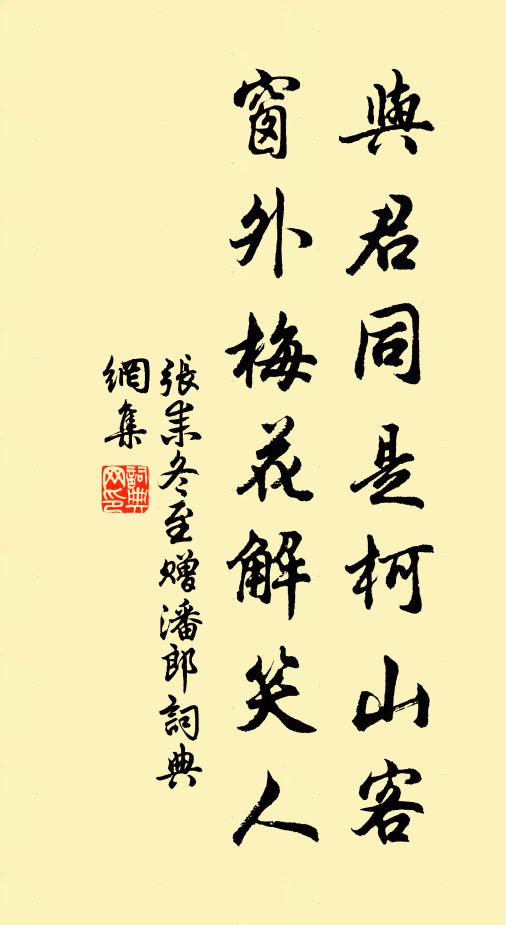 與君同是柯山客
窗外梅花解笑人
張耒冬至贈潘郎詞典
網集
詞典網印